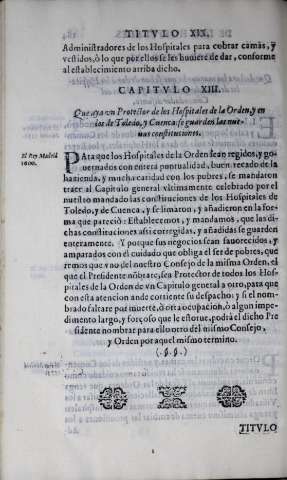 TITVLO XIX.
Administradores de los Hospitales para cobrar camas, y
vestidos, ò lo que por ellos se les huuiere de dar, conforme
al establecimiento arriba dicho.
CAPITVLO XIII.
Que aya un Protector de los Hospitales de la Orden, y en
los de Toledo, y Cuenca se guarden las nue-
uas constituciones.
El Rey Madrid
1600.
PAra que los Hospitales de la Orden sean regidos, y go-
uernados con entera puntualidad, buen recado de la
hazienda, y mucha caridad con los pobres, se mandaron
traer al Capitulo general vltimamente celebrado por el
nuestro mandado las constituciones de los Hospitales de
Toledo, y de Cuenca, y se limaron, y añadieron en la for-
ma que pareciò: Establecemos, y mandamos, que las di-
chas constituciones assi corregidas, y añadidas se guarden
enteramente. Y porque sus negocios sean fauorecidos, y
amparados con el cuidado que obliga el ser de pobres, que
remos que vno del nuestro Consejo de la misma Orden, el
que el Presidente nõbrare, sea Protector de todos los Hos-
pitales de la Orden de vn Capitulo general a otro, para que
con esta atencion ande corriente su despacho; y si el nom-
brado faltare por muerte, ò otra ocupacion, ò algun impe-
dimento largo, y forçoso que le estorue, podrà el dicho Pre
sidente nombrar para ello otro del mismo Consejo,
y Orden por aquel mismo termino.
(.§.§.)
TITVLO